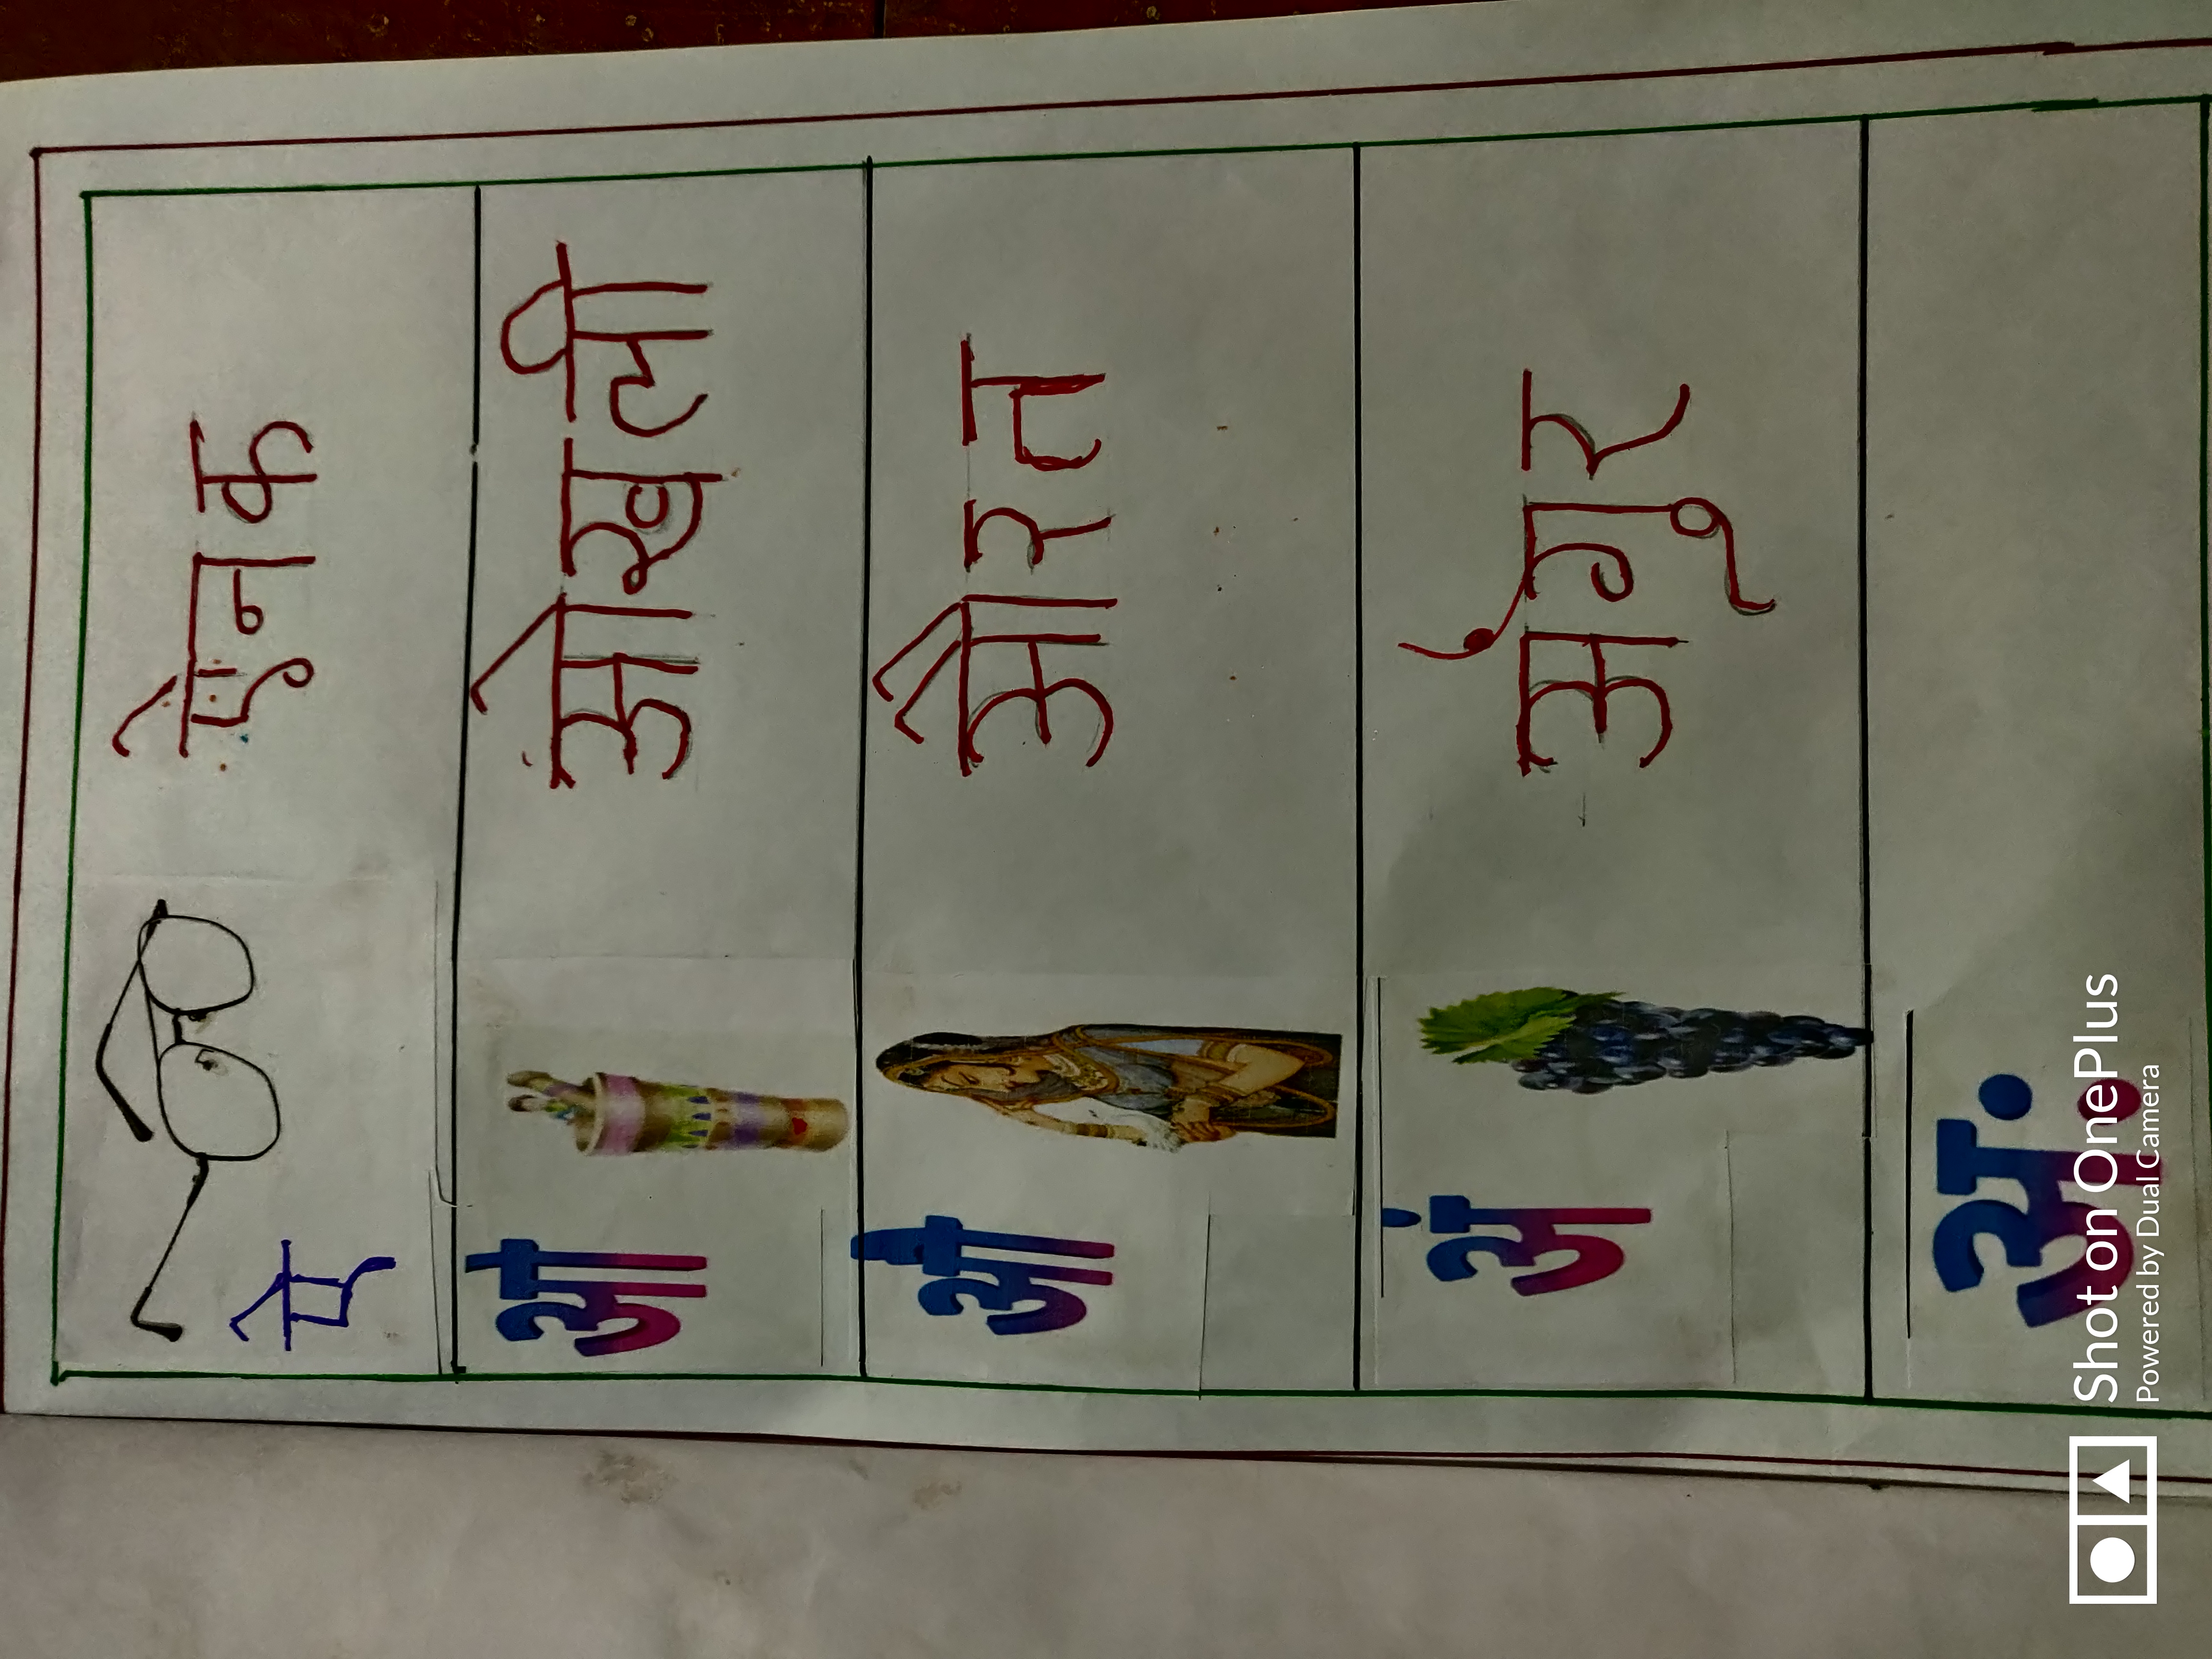 ऐ ऐनक
ओ ओखली
औ औरत
अं अंगूर
अः
Shot on OnePlus
Powered by Dual Camera